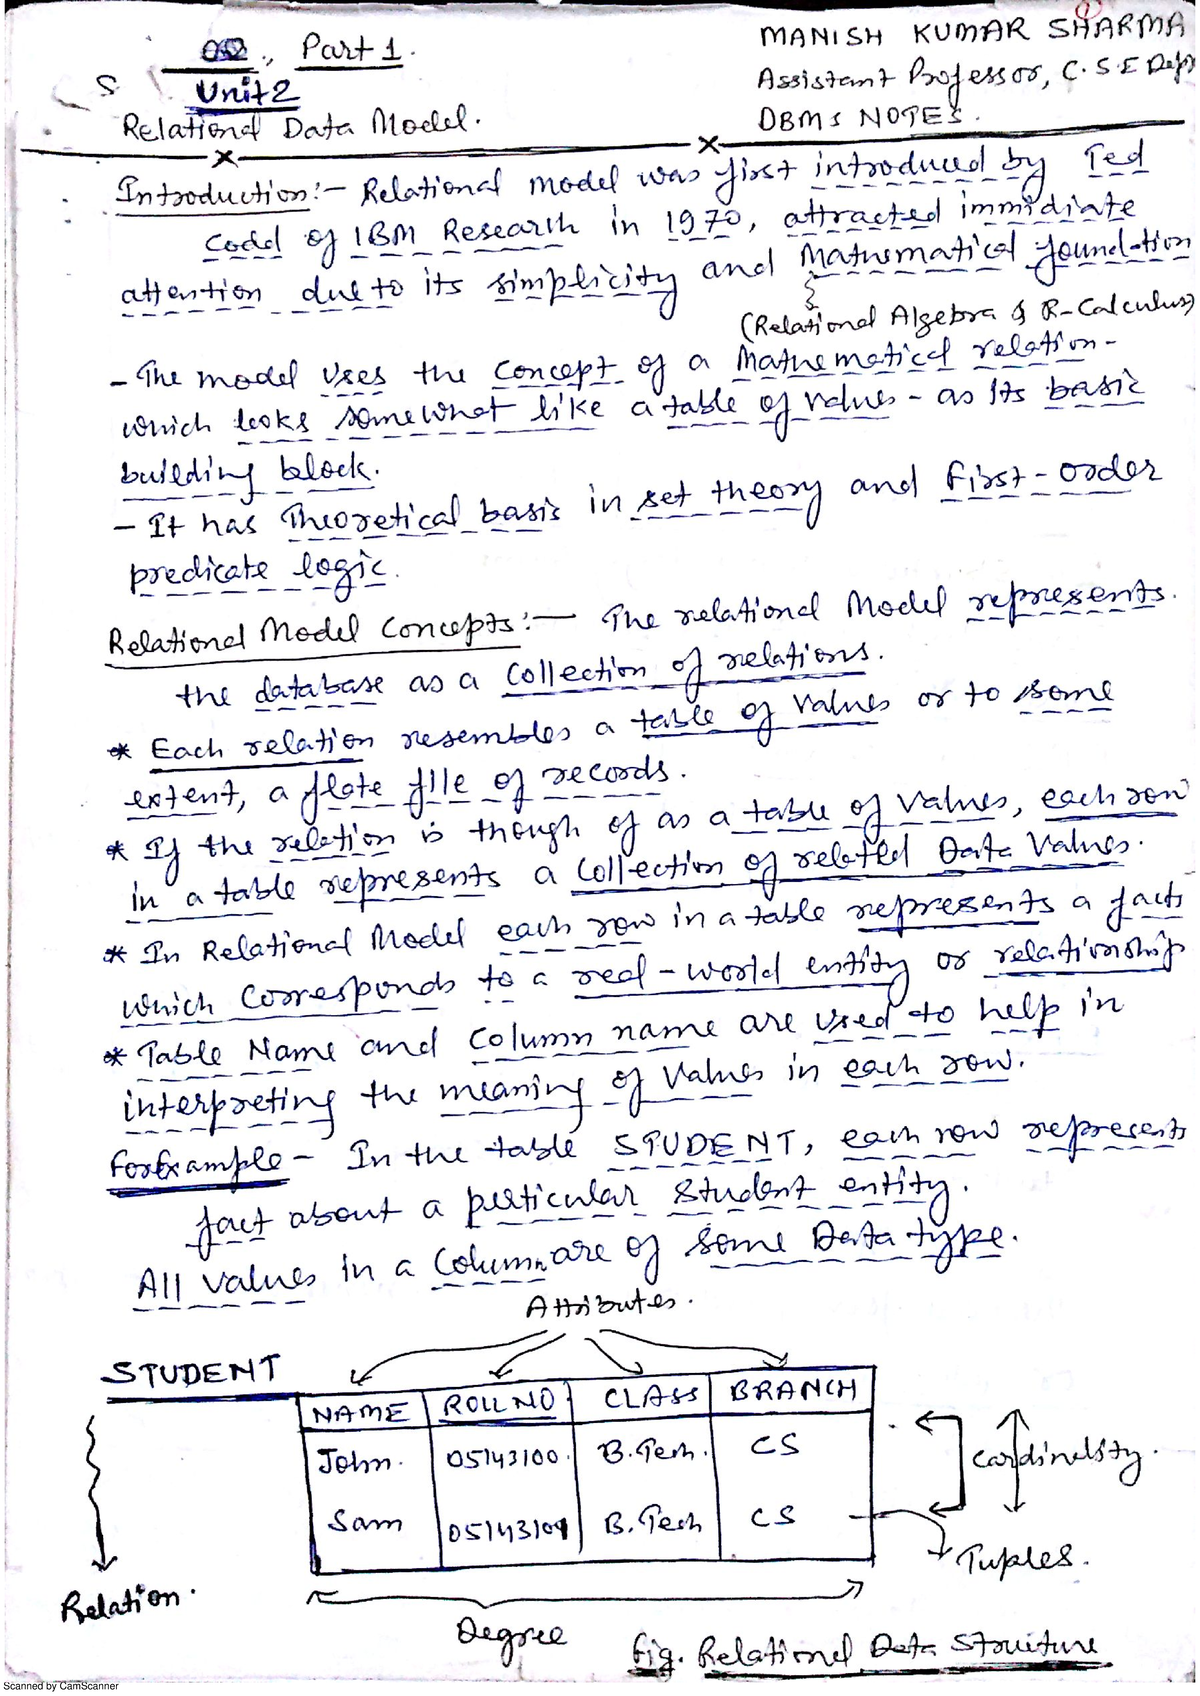 Part 1.
Unit 2
Relational Data Model.
MANISH KUMAR SHARMA
Assistant Professor, C.S.E Dept
DBMS NOTES.
Introduction:- Relational model was first introduced by Ted
Codd of IBM Research in 1970, attracted immidiate
attention due to its simplicity and Mathematical foundation
(Relational Algebra & R-Calculus)
- The model uses the concept of a Mathematical relation -
which looks somewhat like a table of values - as its basic
building block.
- It has Theoretical basis in set theory and first-order
predicate logic.
Relational Model Concepts:- The relational Model represents
the database as a collection of relations.
* Each relation resembles a table of values or to some
extent, a flate file of records.
* If the relation is though of as a table of values, each row
in a table represents a collection of related Data Values.
* In Relational Model each row in a table represents a fact
which corresponds to a real-world entity or relationship
* Table Name and Column name are used to help in
interpreting the meaning of Values in each row.
For Example - In the table STUDENT, each row represents
fact about a perticular student entity.
All values in a column are of same Data type.
Attributes.
STUDENT
NAME ROLL NO CLASS BRANCH
John. 05143100. B.Tech. CS
Sam 05143101 B.Tech CS
Cardinality.
Tuples.
Relation.
Degree
Fig. Relational Data Structure
Scanned by CamScanner